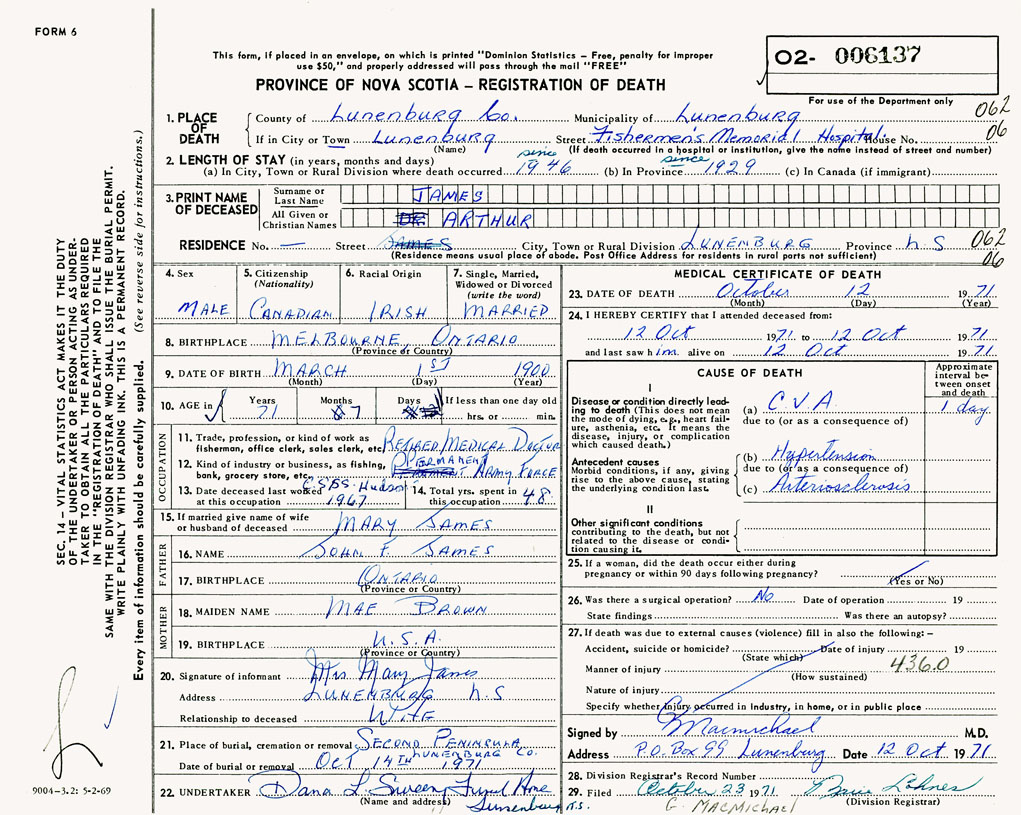 FORM 6
This form, if placed in an envelope, on which is printed "Dominion Statistics – Free, penalty for improper
use $50," and properly addressed will pass through the mail "FREE"
PROVINCE OF NOVA SCOTIA – REGISTRATION OF DEATH
02- 006137
For use of the Department only
062
06
1. PLACE OF DEATH
County of Lunenburg Co. Municipality of Lunenburg
If in City or Town Lunenburg Street Fishermen's Memorial Hospital House No.
(Name) (If death occurred in a hospital or institution, give the name instead of street and number)
2. LENGTH OF STAY (in years, months and days)
(a) In City, Town or Rural Division where death occurred since 1946 (b) In Province since 1929 (c) In Canada (if immigrant)
3. PRINT NAME OF DECEASED
Surname or Last Name JAMES
All Given or Christian Names DR. ARTHUR
RESIDENCE No. — Street JAMES City, Town or Rural Division LUNENBURG Province N.S
062
06
(Residence means usual place of abode. Post Office Address for residents in rural parts not sufficient)
4. Sex MALE
5. Citizenship (Nationality) CANADIAN
6. Racial Origin IRISH
7. Single, Married, Widowed or Divorced (write the word) MARRIED
8. BIRTHPLACE MELBOURNE ONTARIO
(Province or Country)
9. DATE OF BIRTH MARCH 1ST 1900
(Month) (Day) (Year)
10. AGE in Years 71 Months 7 Days If less than one day old
hrs. or min.
OCCUPATION
11. Trade, profession, or kind of work as fisherman, office clerk, sales clerk, etc. RETIRED/MEDICAL DOCTOR
12. Kind of industry or business, as fishing, bank, grocery store, etc. PERMANENT ARMY FORCE
C.S.S. Hudson
13. Date deceased last worked at this occupation 1967
14. Total yrs. spent in this occupation 48
15. If married give name of wife or husband of deceased MARY JAMES
FATHER
16. NAME JOHN F. JAMES
17. BIRTHPLACE ONTARIO
(Province or Country)
MOTHER
18. MAIDEN NAME MAE BROWN
19. BIRTHPLACE U.S.A.
(Province or Country)
20. Signature of informant Mrs Mary James
Address LUNENBURG N.S
Relationship to deceased WIFE
21. Place of burial, cremation or removal SECOND PENINSULA
LUNENBURG CO.
Date of burial or removal OCT 14TH 1971
22. UNDERTAKER Dana L Sweeny Funeral Home
(Name and address) Lunenburg N.S.
MEDICAL CERTIFICATE OF DEATH
23. DATE OF DEATH October 12 1971
(Month) (Day) (Year)
24. I HEREBY CERTIFY that I attended deceased from:
12 Oct 1971 to 12 Oct 1971
and last saw him alive on 12 Oct 1971
CAUSE OF DEATH
Approximate interval between onset and death
I
Disease or condition directly leading to death (This does not mean the mode of dying, e.g., heart failure, asthenia, etc. It means the disease, injury, or complication which caused death.)
(a) CVA 1 day
due to (or as a consequence of)
Antecedent causes
Morbid conditions, if any, giving rise to the above cause, stating the underlying condition last.
(b) Hypertension
due to (or as a consequence of)
(c) Arteriosclerosis
II
Other significant conditions
contributing to the death, but not related to the disease or condition causing it.
25. If a woman, did the death occur either during
pregnancy or within 90 days following pregnancy?
(Yes or No)
26. Was there a surgical operation? No Date of operation 19
State findings Was there an autopsy?
27. If death was due to external causes (violence) fill in also the following:–
Accident, suicide or homicide? Date of injury 19
(State which)
Manner of injury 436.0
(How sustained)
Nature of injury
Specify whether injury occurred in industry, in home, or in public place
Signed by G Macmichael M.D.
Address P.O. Box 99 Lunenburg Date 12 Oct 1971
28. Division Registrar's Record Number
29. Filed October 23 1971 Lohnes
(Division Registrar)
G. MACMICHAEL
SEC. 14 – VITAL STATISTICS ACT MAKES IT THE DUTY
OF THE UNDERTAKER OR PERSON ACTING AS UNDERTAKER
TO OBTAIN ALL THE PARTICULARS REQUIRED
IN THE "REGISTRATION OF DEATH" AND TO FILE THE
SAME WITH THE DIVISION REGISTRAR WHO SHALL ISSUE THE BURIAL PERMIT.
WRITE PLAINLY WITH UNFADING INK. THIS IS A PERMANENT RECORD.
Every item of information should be carefully supplied. (See reverse side for instructions.)
9004-3.2: 5-2-69